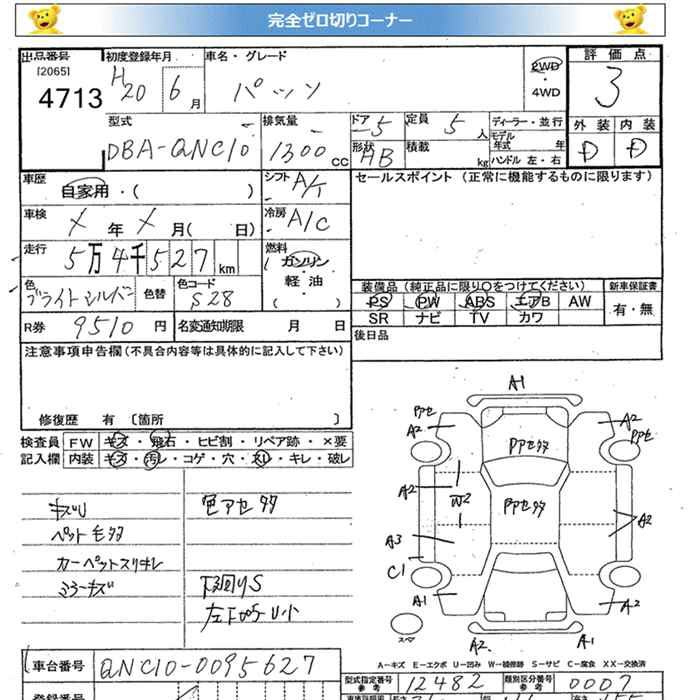 完全ゼロ切りコーナー
出品番号 初度登録年月 車名・グレード 2WD 評価点
[2065]
4713 H20 6月 パッソ 4WD 3
型式 排気量 ドア 定員 ディーラー・並行 外装 内装
DBA-QNC10 1300cc 5 5人 モデル年式 年 D D
形状 積載 ハンドル 左・右
HB kg
車歴 シフト A/T セールスポイント (正常に機能するものに限ります)
自家用・( )
車検 冷房 A/C
X年X月( 日)
走行 燃料
5万4千527km ガソリン
色 色替 色コード 軽油 装備品 (純正品に限り○をつけてください) 新車保証書
ブライトシルバー S28 ( ) PS PW ABS エアB AW 有・無
R券 9510円 名変通知期限 月 日 SR ナビ TV カワ
注意事項申告欄(不具合内容等は具体的に記入して下さい) 後日品
修復歴 有 [箇所 ]
検査員 FW キズ・飛石・ヒビ割・リペア跡・×要
記入欄 内装 キズ・汚レ・コゲ・穴・スレ・キレ・破レ
キズU 色アセ タタ
ペット毛タタ
カーペットスリキレ
ミラーキズ 下回りS
A1
A2 A2
A2 W2
A3 A2
C1
A1 A2
スペア
A2 A1
A-キズ E-エクボ U-凹み W-補修跡 S-サビ C-腐食 XX-交換済
車台番号 QNC10-0095627
型式指定番号 参考 12482 類別区分番号 参考 0007